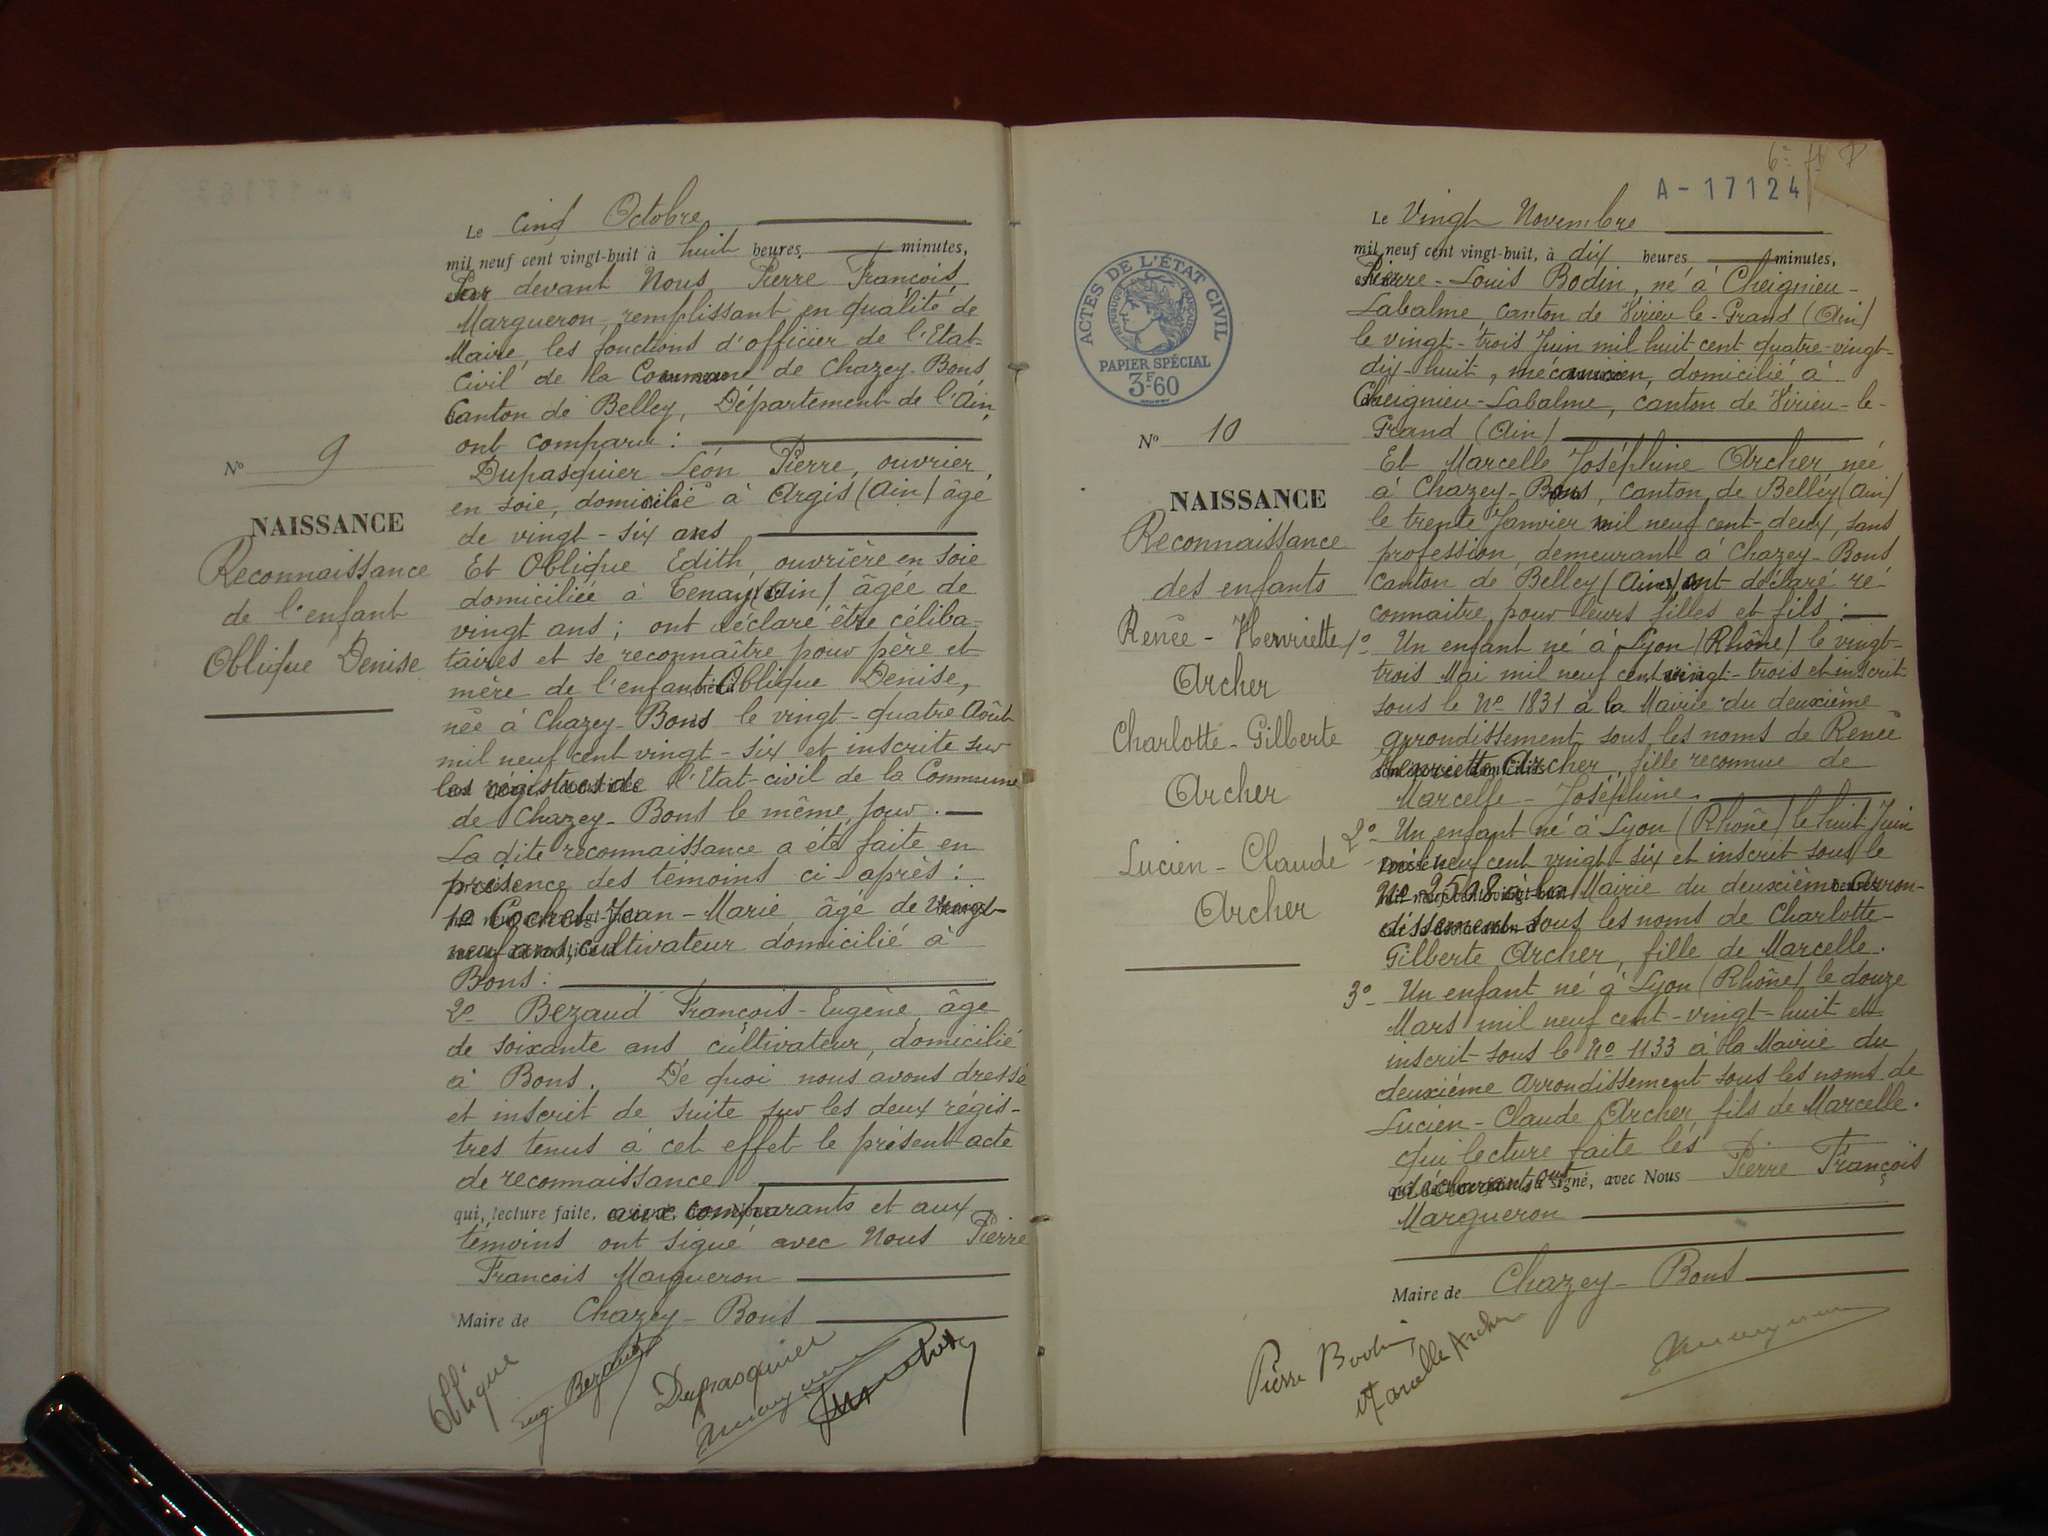 Le cinq Octobre
mil neuf cent vingt-huit à huit heures minutes,
Par devant Nous Pierre François
Margueron, remplissant en qualité de
Maire, les fonctions d'officier de l'Etat-
Civil de la Commune de Chazey-Bons
Canton de Belley, Département de l'Ain,
ont comparu :
Dupasquier Léon Pierre, ouvrier
en soie, domicilié à Argis (Ain) âgé
de vingt-six ans
Et Oblique Edith, ouvrière en soie
domiciliée à Tenay (Ain) âgée de
vingt ans ; ont déclaré être céliba-
taires et se reconnaître pour père et
mère de l'enfant Oblique Denise,
née à Chazey-Bons le vingt-quatre Août
mil neuf cent vingt-six et inscrite sur
les régistres de l'Etat-civil de la Commune
de Chazey-Bons le même jour.
La dite reconnaissance a été faite en
présence des témoins ci-après :
1º Cochet Jean-Marie âgé de vingt-
neuf ans, cultivateur domicilié à
Bons :
2º Bezaud François-Eugène, âgé
de soixante ans cultivateur, domicilié
à Bons. De quoi nous avons dressé
et inscrit de suite sur les deux régis-
tres tenus à cet effet le présent acte
de reconnaissance
qui, lecture faite, aux comparants et aux
témoins ont signé avec Nous Pierre
François Margueron
Maire de Chazey-Bons
Oblique
Eug. Bezaud
Dupasquier
Margueron
Nº 9
NAISSANCE
Reconnaissance
de l'enfant
Oblique Denise
A-17124
ACTES DE L'ÉTAT CIVIL
PAPIER SPÉCIAL
3F60
Nº 10
NAISSANCE
Reconnaissance
des enfants
Renée-Henriette
Archer
Charlotte-Gilberte
Archer
Lucien-Claude
Archer
Le Vingt Novembre
mil neuf cent vingt-huit, à dix heures minutes,
Pierre-Louis Bodin, né à Cheignieu-
Labalme canton de Virieu-le-Grand (Ain)
le vingt-trois Juin mil huit cent quatre-vingt-
dix-huit, mecanicien, domicilié à
Cheignieu-Labalme, canton de Virieu-le-
Grand (Ain)
Et Marcelle Joséphine Archer née
à Chazey-Bons, canton de Belley (Ain)
le trente Janvier mil neuf cent-deux, sans
profession, demeurant à Chazey-Bons
canton de Belley (Ain) ont déclaré re
connaitre pour leurs filles et fils :
1º Un enfant né à Lyon (Rhône) le vingt-
trois Mai mil neuf cent vingt-trois et inscrit
sous le Nº 1831 à la Mairie du deuxième
arrondissement sous les noms de Renée
Henriette Archer, fille reconnue de
Marcelle-Joséphine.
2º Un enfant né à Lyon (Rhône) le huit Juin
mil neuf cent vingt-six et inscrit sous le
Nº 2518 à la Mairie du deuxième Arron-
dissement sous les noms de Charlotte-
Gilberte Archer, fille de Marcelle.
3º Un enfant né à Lyon (Rhône) le douze
Mars mil neuf cent-vingt-huit et
inscrit sous le Nº 1133 à la Mairie du
deuxième Arrondissement sous les noms de
Lucien-Claude Archer, fils de Marcelle.
qui lecture faite les
déclarants ont signé, avec Nous Pierre François
Margueron
Maire de Chazey-Bons
Pierre Bodin
Marcelle Archer
Margueron